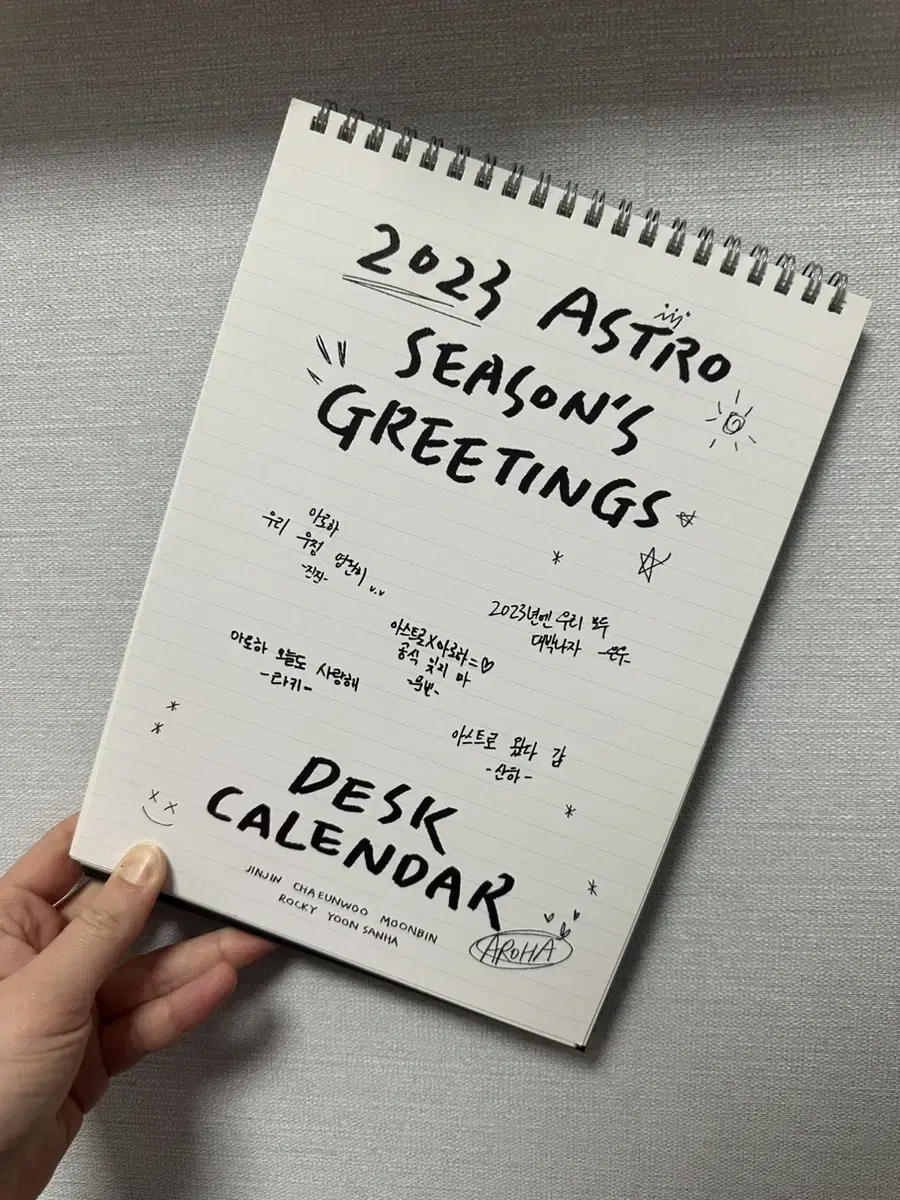 2023 ASTRO
SEASON'S
GREETINGS
아로하
우리 우정 영원히 ᴗ.ᴗ
-진진-
2023년엔 우리 모두
대박나자 -은우-
아스트로X아로하=♡
공식 잊지 마
-문빈-
아로하 오늘도 사랑해
-라키-
아스트로 왔다 감
-산하-
DESK
CALENDAR
JINJIN CHAEUNWOO MOONBIN
ROCKY YOON SANHA
AROHA